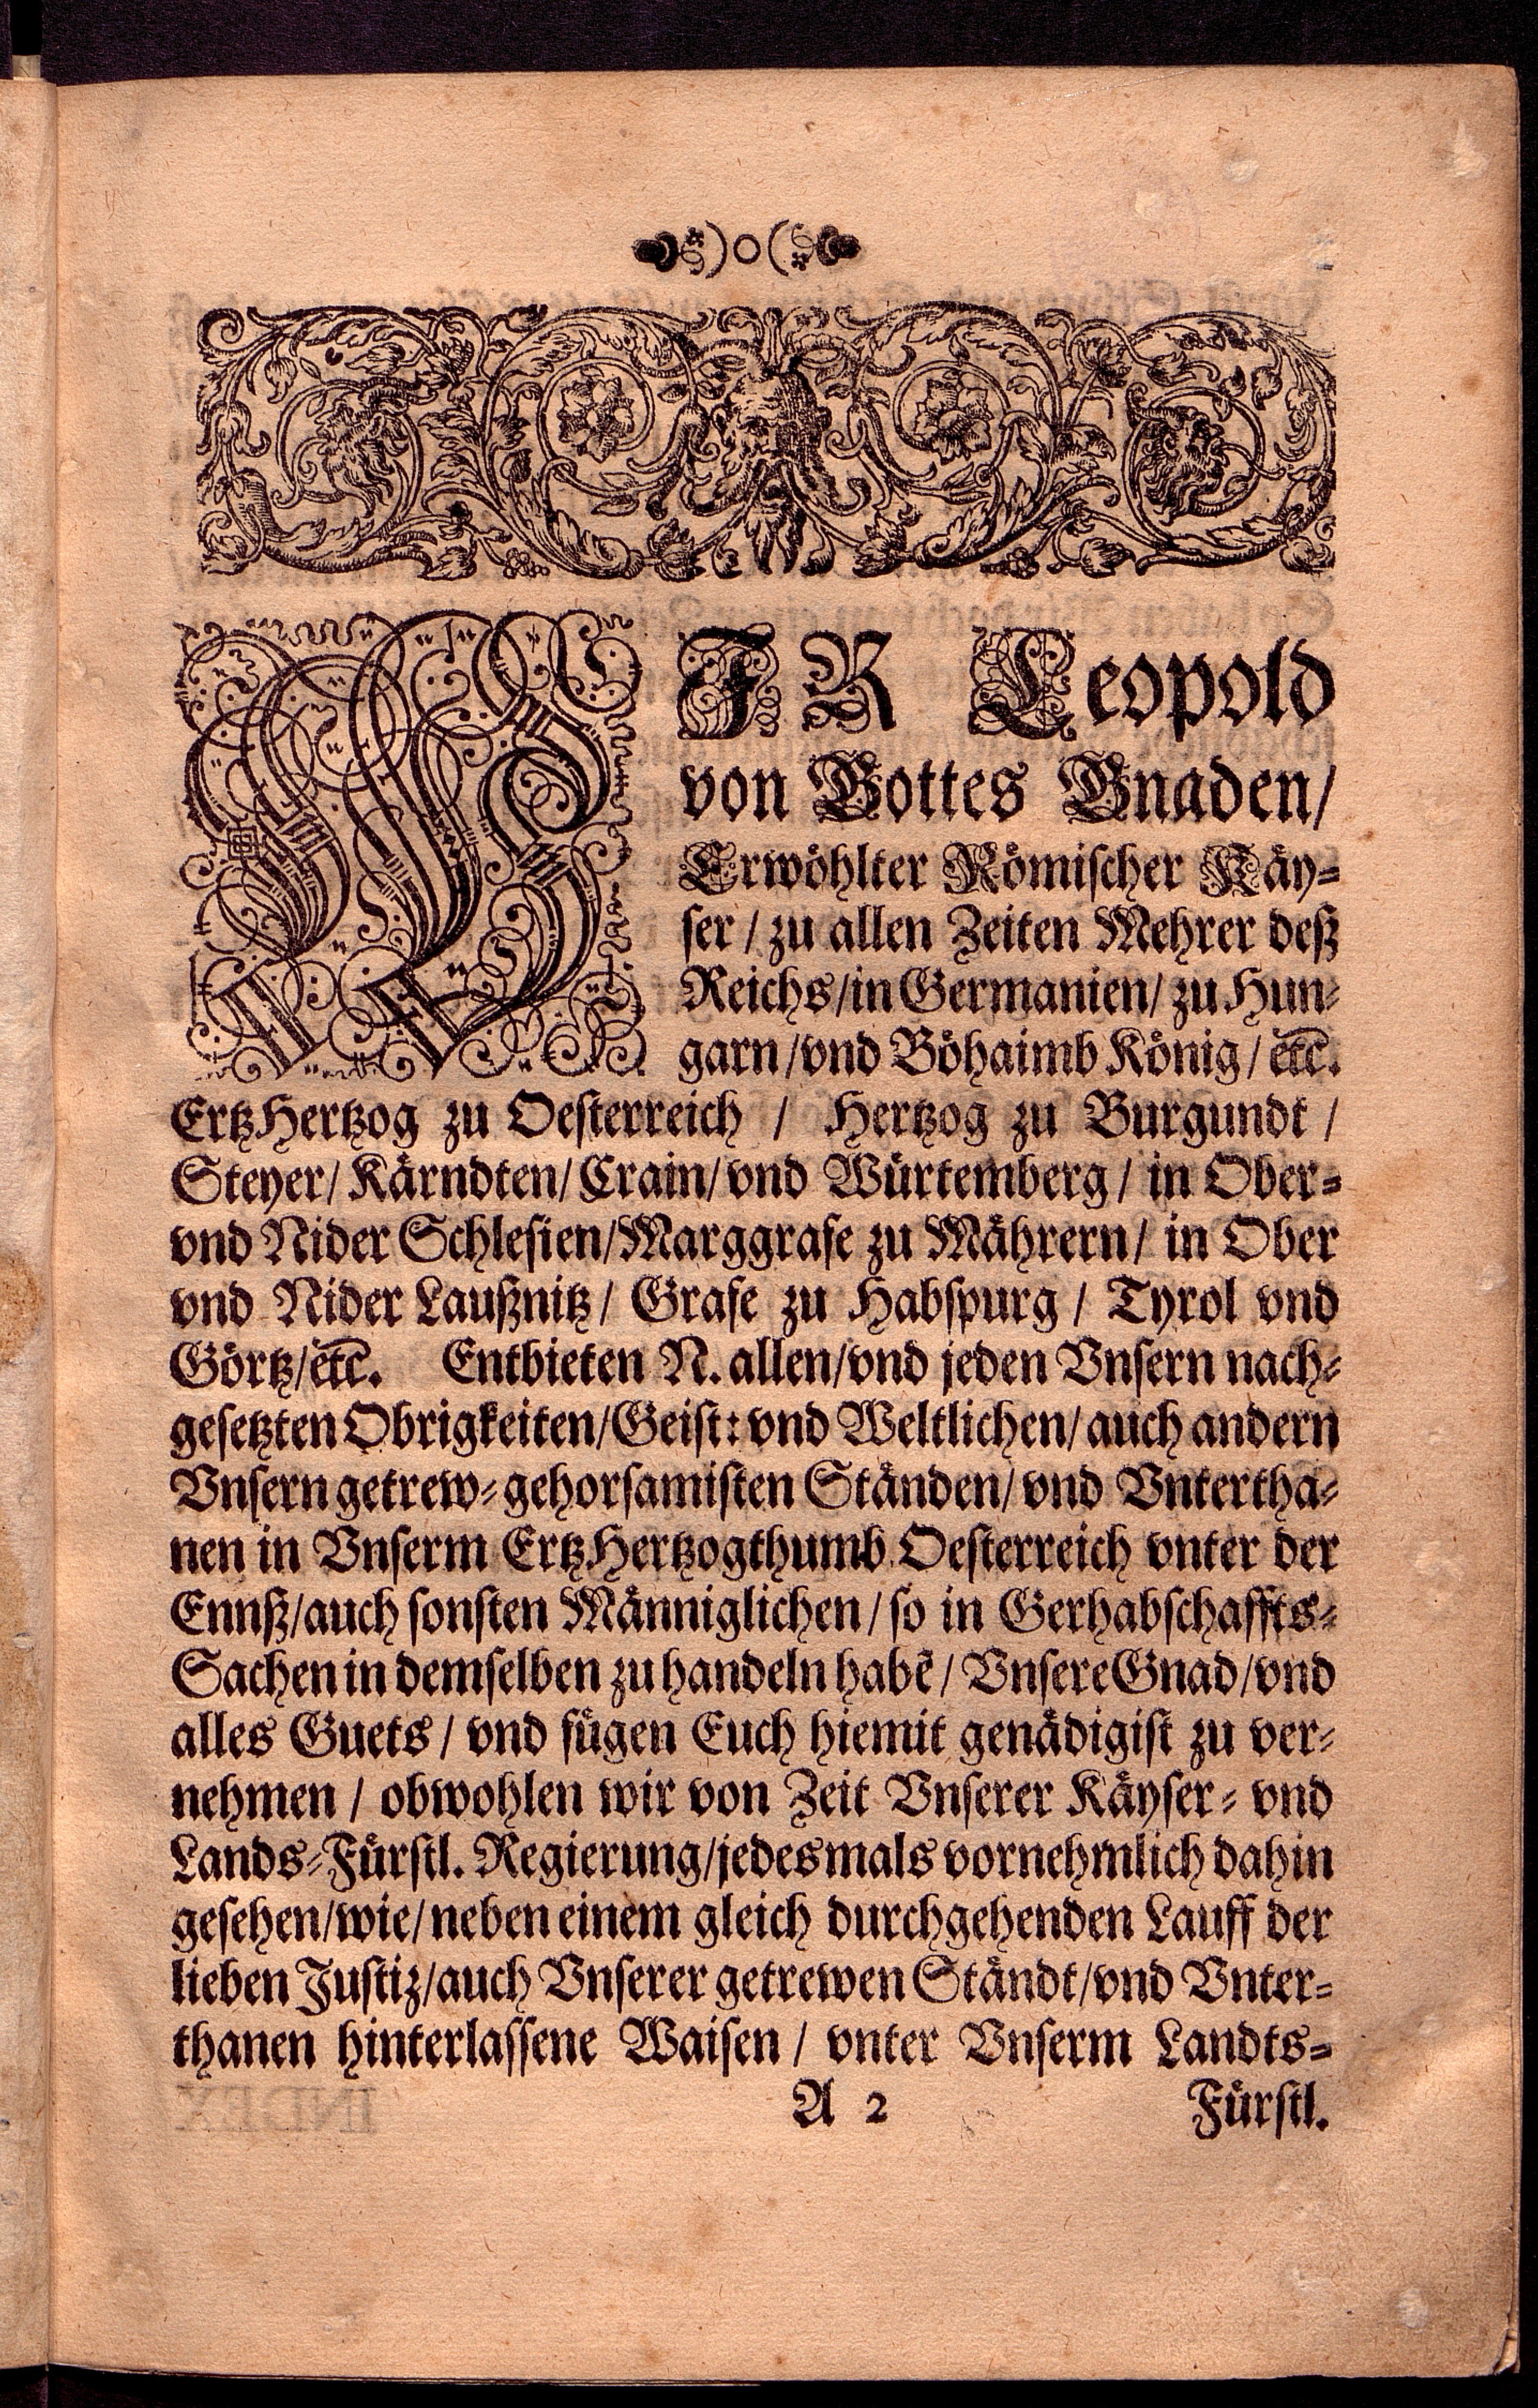 )o(
WIR Leopold
von Gottes Gnaden/
Erwöhlter Römischer Käy=
ser / zu allen Zeiten Mehrer deß
Reichs/in Germanien/ zu Hun=
garn/vnd Böhaimb König/ etc.
ErtzHertzog zu Oesterreich / Hertzog zu Burgundt /
Steyer/ Kärndten/ Crain/ vnd Würtemberg/ in Ober=
vnd Nider Schlesien/Marggrafe zu Mährern/ in Ober
vnd Nider Laußnitz/ Grafe zu Habspurg / Tyrol vnd
Görtz/etc. Entbieten N. allen/vnd jeden Vnsern nach=
gesetzten Obrigkeiten/Geist: vnd Weltlichen/ auch andern
Vnsern getrew=gehorsamisten Ständen/ vnd Vntertha=
nen in Vnserm ErtzHertzogthumb Oesterreich vnter der
Ennß/auch sonsten Männiglichen / so in Gerhabschaffts=
Sachen in demselben zu handeln habē/ Vnsere Gnad/vnd
alles Guets / vnd fügen Euch hiemit genädigist zu ver=
nehmen / obwohlen wir von Zeit Vnserer Käyser= vnd
Lands=Fürstl. Regierung/jedesmals vornehmlich dahin
gesehen/wie/ neben einem gleich durchgehenden Lauff der
lieben Justiz/auch Vnserer getrewen Ständt/vnd Vnter=
thanen hinterlassene Waisen / vnter Vnserm Landts=
A 2 Fürstl.